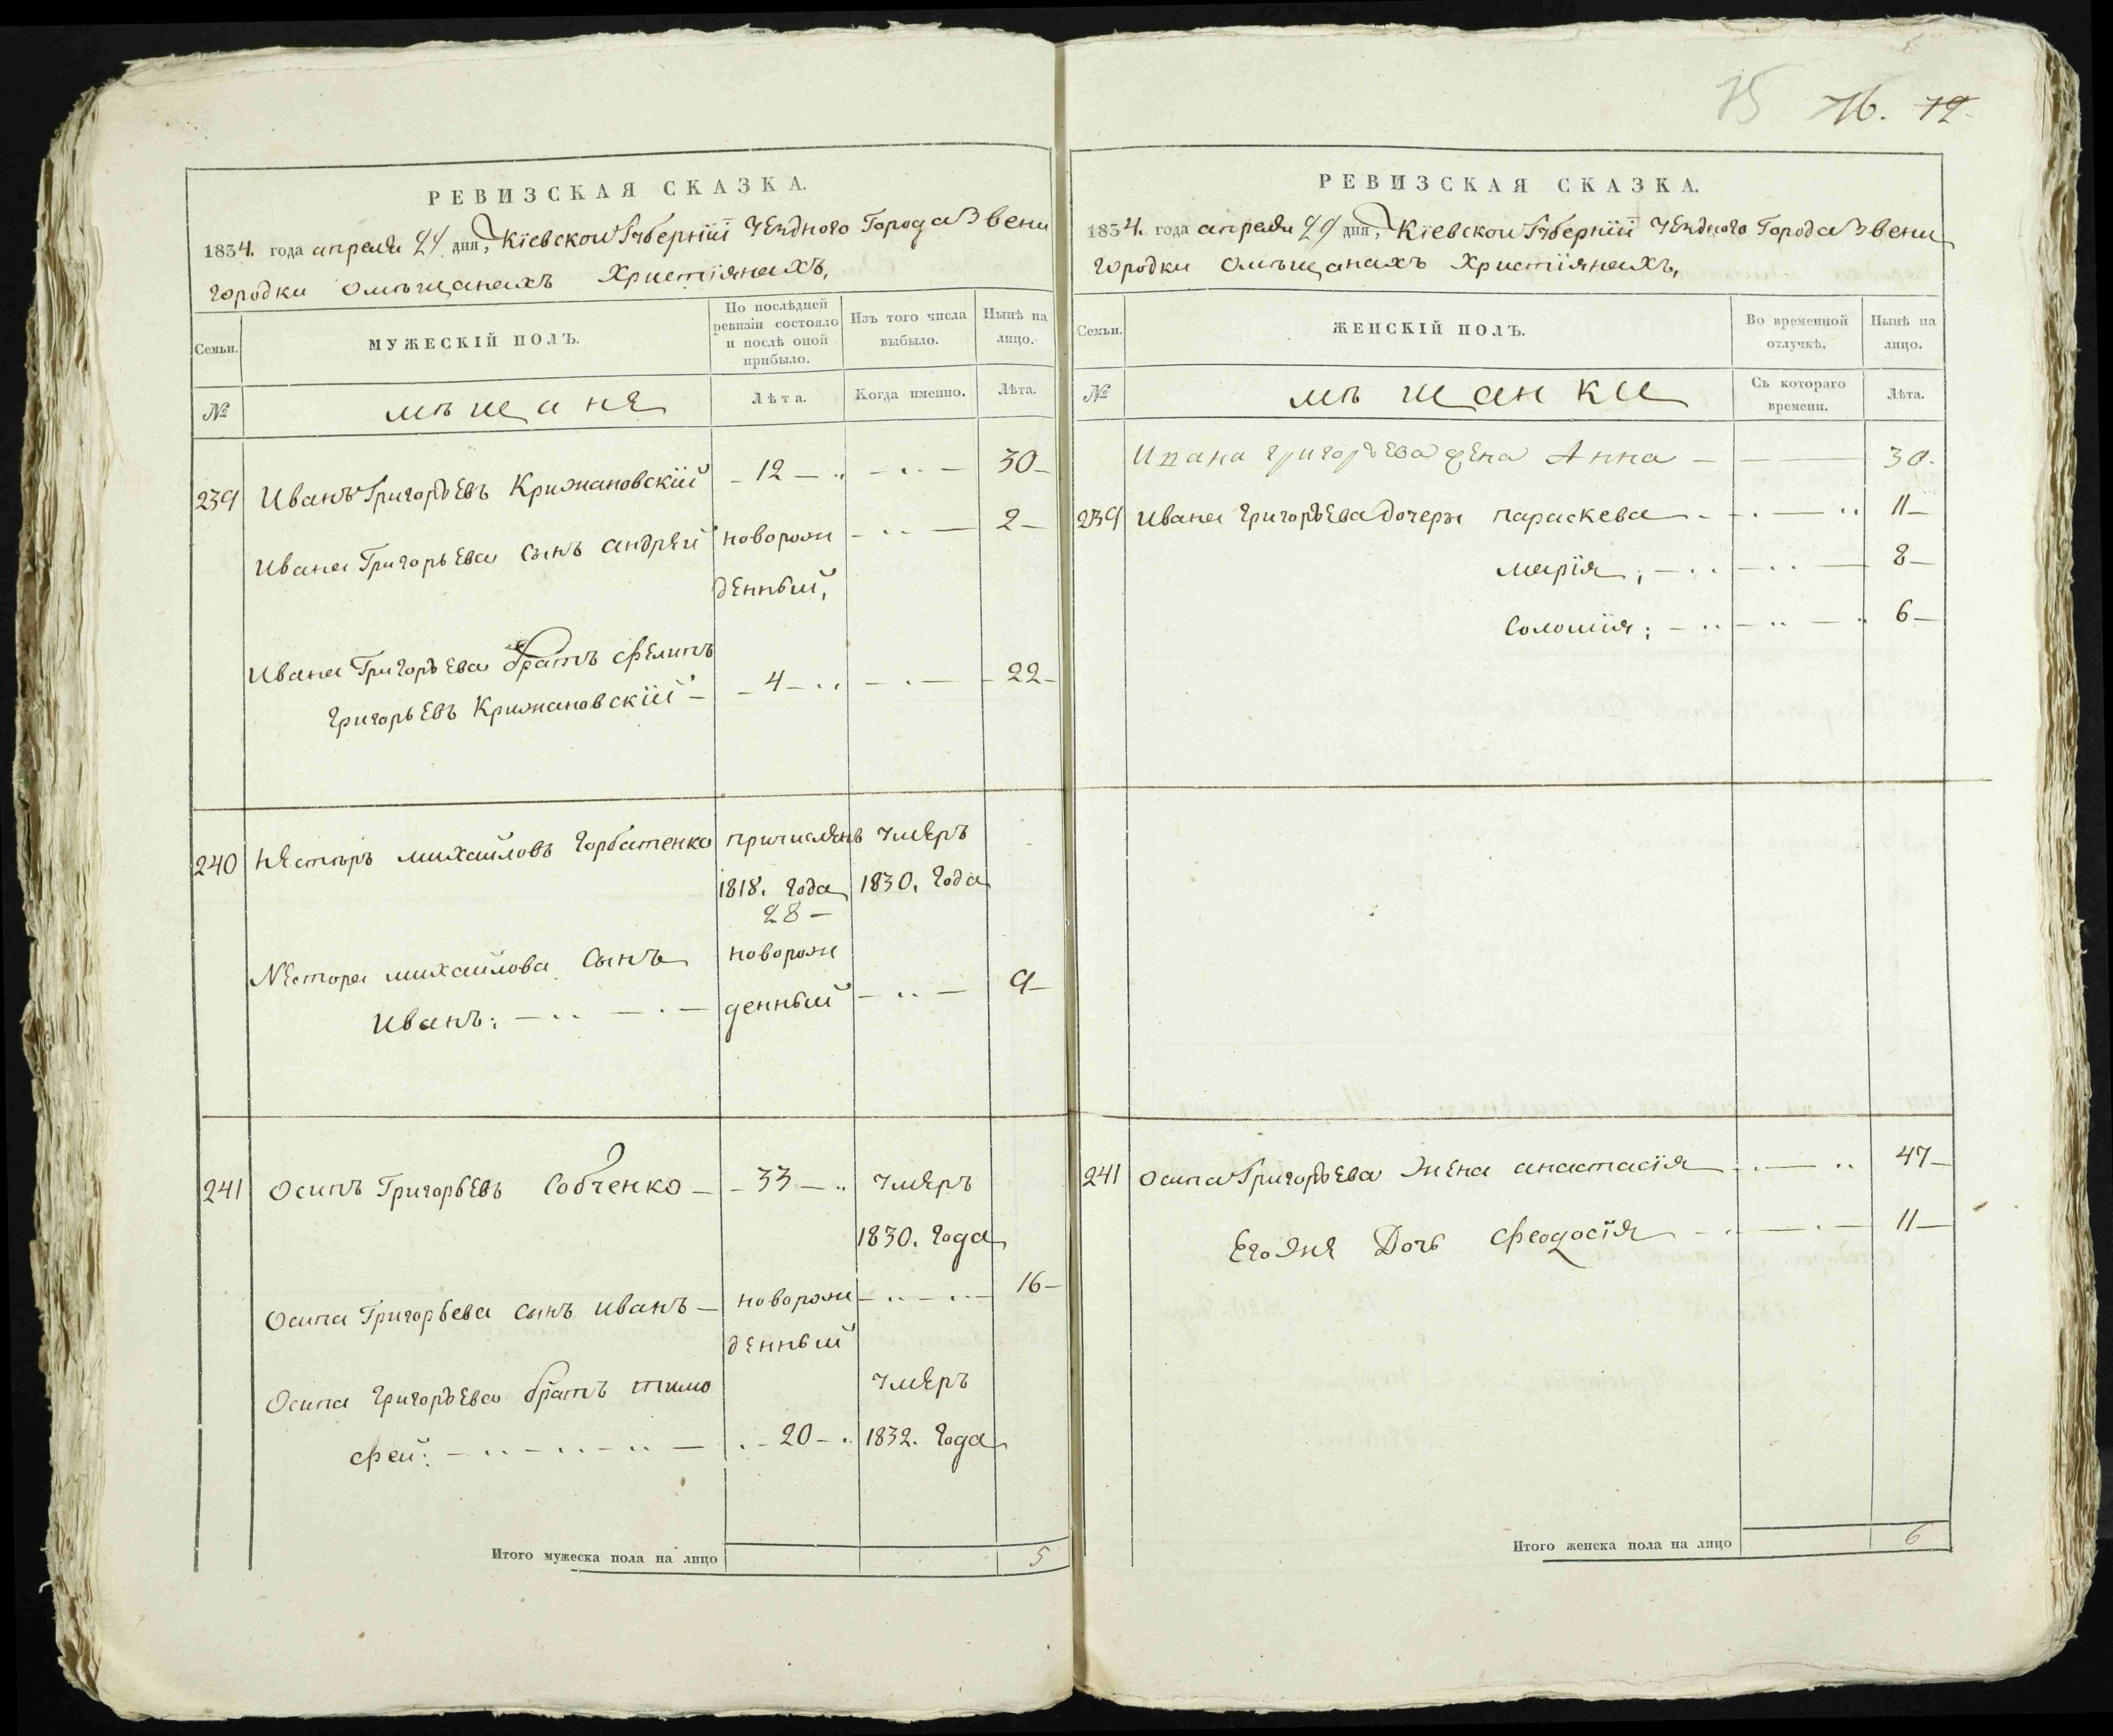 75 76. 72
РЕВИЗСКАЯ СКАЗКА.
1834. года апреля 24 дня, Кіевской Губерніи Уезднаго Города Звени
городки омѣщанахъ Христіянахъ,
Семьи.
МУЖЕСКІЙ ПОЛЪ.
По послѣдней
ревизіи состояло
и послѣ оной
прибыло.
Изъ того числа
выбыло.
Нынѣ на
лицо.
№
мѣщане
Лѣта.
Когда именно.
Лѣта.
239 Иванъ Григорьевъ Крижановскій 12 30
Ивана Григорьева сынъ андрей новорож 2
денный,
Ивана Григорьева братъ Фелипъ
Григорьевъ Крижановскій 4 22
240 Нестъръ михайловъ Горбатенко причисленъ умеръ
1818. Года 1830. Года
28
Нестора михайлова Сынъ новорож
Иванъ: денный 9
241 Осипъ Григорьевъ Собченко 33 умеръ
1830. Года
Осипа Григорьева сынъ иванъ новорож 16
денный
Осипа Григорьева братъ тимо умеръ
фей: 20 1832. Года
Итого мужеска пола на лицо 5
РЕВИЗСКАЯ СКАЗКА.
1834. года апреля 29 дня, Кіевской Губерніи Уезднаго Города Звени
городки омѣщанахъ Христіянахъ,
Семьи.
ЖЕНСКІЙ ПОЛЪ.
Во временной
отлучкѣ.
Нынѣ на
лицо.
№
мѣщанки
Съ котораго
времени.
Лѣта.
Ивана григорьева жена Анна 30
239 Ивана Григорьева дочери параскева 11
марія, 8
Соломія; 6
241 Осипа Григорьева Жена анастасія 47
Его Же Дочь Феодосія 11
Итого женска пола на лицо 6